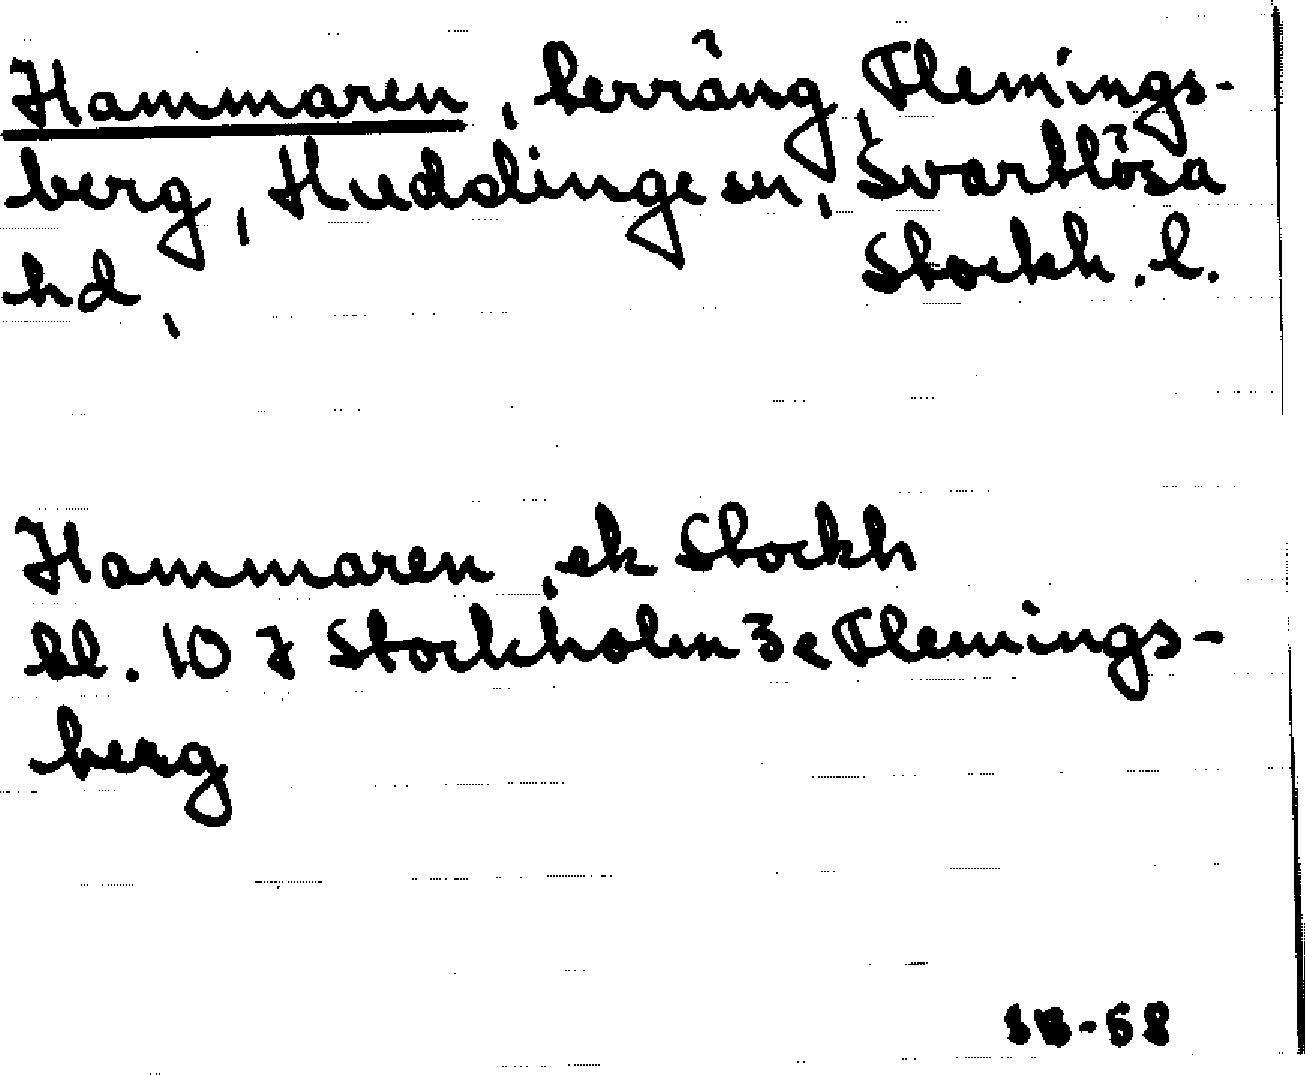 Hammaren, terräng, Flemings-
berg, Huddinge sn, Svartlösa
hd, Stockh. l.
Hammaren, ek Stockh
bl. 10 I Stockholm 3 e Flemings-
berg